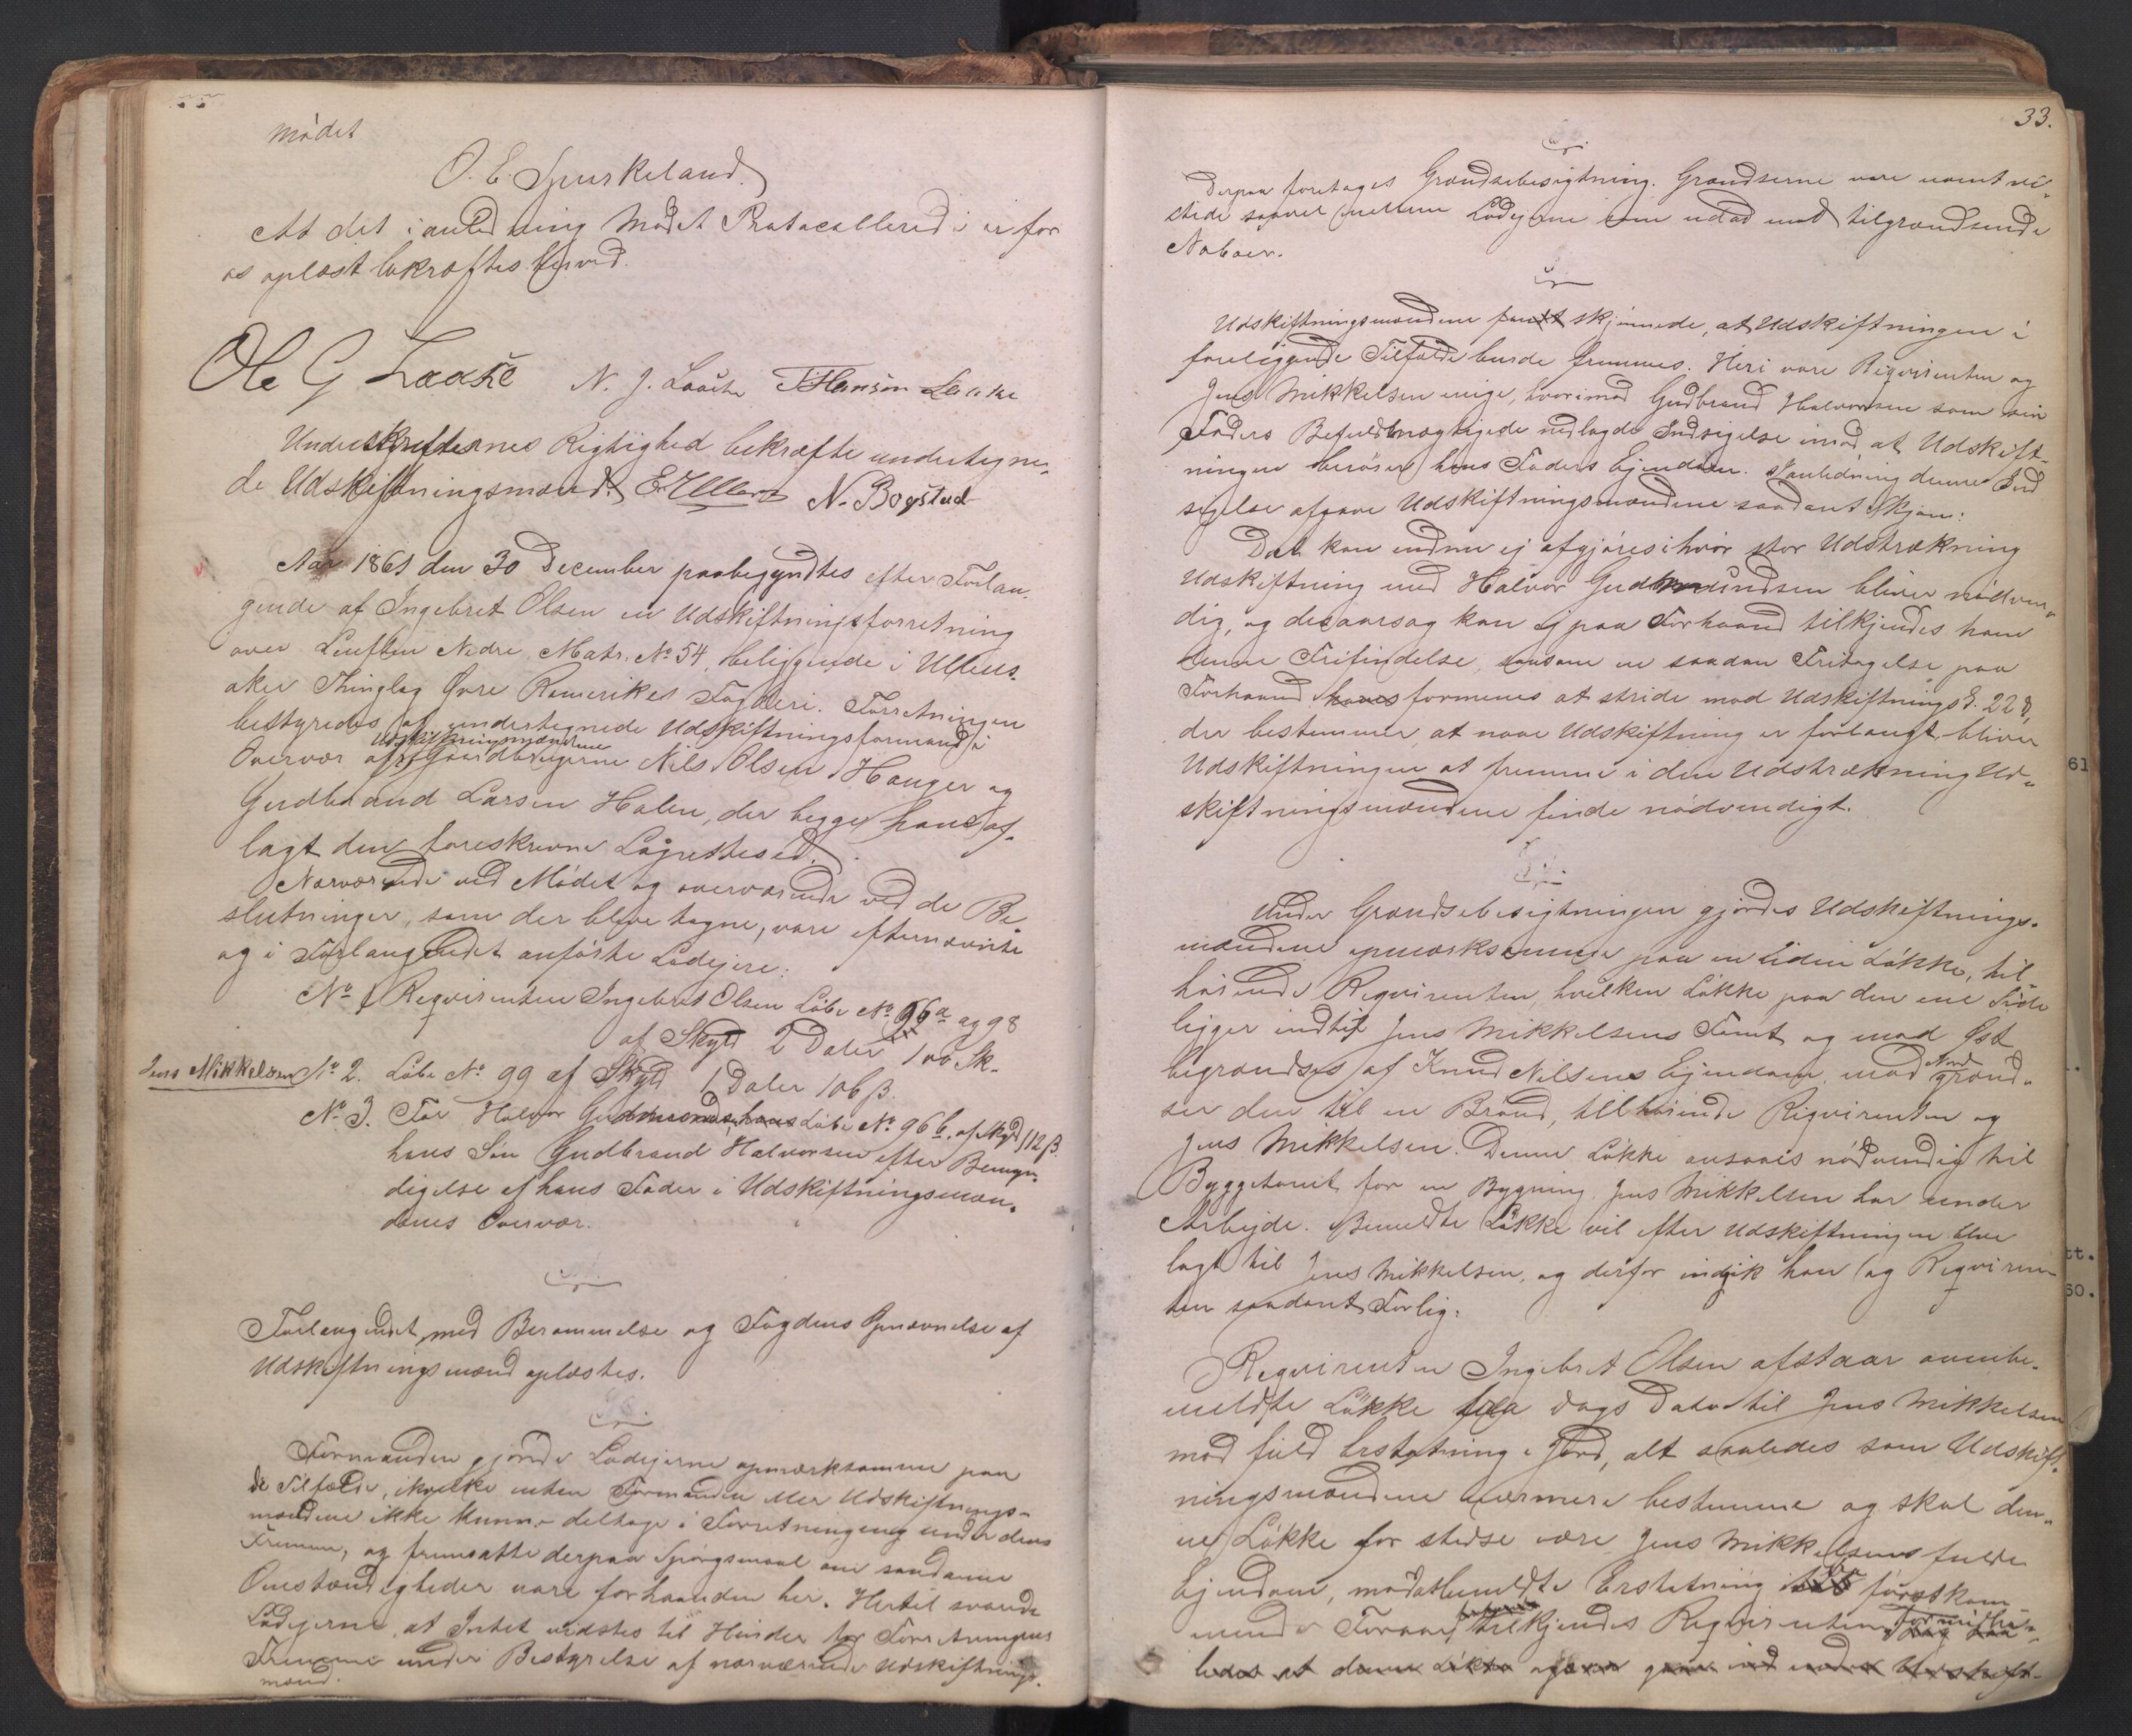 mødet
O. E. Spurkeland.
At det i anledning Mødet Protocollerede er for
os oplæst bekræftes herved.
Ole G Laache N. J. Laache Hansen Laache
Underskrifternes Rigtighed bekræfte undertegne-
de Udskiftningsmænd. N. Bogstad
Aar 1861 den 30 December paabegyndtes efter Forlan-
gende af Ingebret Olsen en Udskiftningsforretning
over Nedre Matr. No 54, beliggende i Ullens-
aker Thinglag Øvre Romerikes Fogderi. Forretningen
bestyredes af undertegnede Udskiftningsformand i
Overvær af Udskiftningsmændene Gaardbrugerne Nils Olsen Hauger og
Gudbrand Larsen Holen, der begge have af-
lagt den foreskrevne Lagrettesed.
Nærværende ved Mødet og overværende ved de Be-
slutninger, som der bleve tagne, vare efternævnte
og i Forlangendet anførte Lodejere:
No 1 Reqvirenten Ingebret Olsen Løbe No 96a og 98
af Skyld 2 Daler 100 Sk.
Jens Mikkelsen No 2. Løbe No 99 af Skyld 1 Daler 106 β.
No 3. For Halvor Gudmundsens Løbe No 96b, af Skyld 112 β.
hans Søn Gudbrand Halvorsen efter Bemyn-
digelse af hans Fader i Udskiftningsmæn-
denes Overvær.
Forlangendet med Berammelse og Fogdens Opnævnelse af
Udskiftningsmænd oplæstes.
Formanden gjorde Lodejerne opmærksomme paa
de Tilfælde, i hvilke enten Formanden eller Udskiftnings-
mændene ikke kunne deltage i Forretningen og under dens
Fremme, og fremsatte derpaa Spørgsmaal om saadanne
Omstændigheder vare forhaanden her. Hertil svarede
Lodejerne, at Intet vidstes til Hinder for Forretningens
Fremme under Bestyrelse af nærværende Udskiftnings-
mænd.
33.
Derpaa foretages Grændsebesigtning. Grændserne vare uomtvi-
stede saavel mellem Lodejerne som udad mod tilgrændsende
Naboer.
Udskiftningsmændene fandt skjønnede, at Udskiftningen i
foreliggende Tilfælde burde fremmes. Heri vare Reqvirenten og
Jens Mikkelsen enige, hvorimod Gudbrand Halvorsen som sin
Faders Befuldmægtigede nedlagde Indsigelse imod at Udskift-
ningen berører hans Faders Ejendom. I Anledning denne Ind
sigelse afgave Udskiftningsmændene saadant Skjøn:
Det kan endnu ej afgjøres i hvor stor Udstrækning
Udskiftning med Halvor Gudmundsen bliver nødven-
dig, og desaarsag kan ej paa Forhaand tilkjendes ham
denne Frifindelse, saasom en saadan Fritagelse paa
Forhaand formenes at stride mod Udskiftnings§. 22,
der bestemmer, at naar Udskiftning er forlangt, bliver
Udskiftningen at fremme i den Udstrækning Ud-
skiftningsmændene finde nødvendigt.
Under Grændsebesigtningen gjordes Udskiftnings-
mændene opmærksomme paa en liden Løkke, til-
hørende Reqvirenten, hvilken Løkke paa den ene Side
ligger indtil Jens Mikkelsens Tomt og mod Øst
begrændses af Knud Nilsens Ejendom, mod Nord grænd-
ser den til en Brønd, tilhørende Reqvirenten og
Jens Mikkelsen. Denne Løkke ansaaes nødvendig til
Byggetomt for en Bygning Jens Mikkelsen har under
Arbejde. Bemeldte Løkke vil efter Udskiftningen blive
lagt til Jens Mikkelsen, og derfor indgik han og Reqviren-
ten saadant Forlig:
Reqvirenten Ingebret Olsen afstaar ovenbe-
meldte Løkke fra Dags Dato til Jens Mikkelsen
mod fuld Erstatning i Jord, alt saaledes som Udskift-
ningsmændene nærmere bestemme og skal den-
ne Løkke for stedse være Jens Mikkelsens fulde
Ejendom, mod at bemeldte Erstatning i førstkom-
mende Foraar tilkjendes Reqvirenten
ledes at denne Løkke